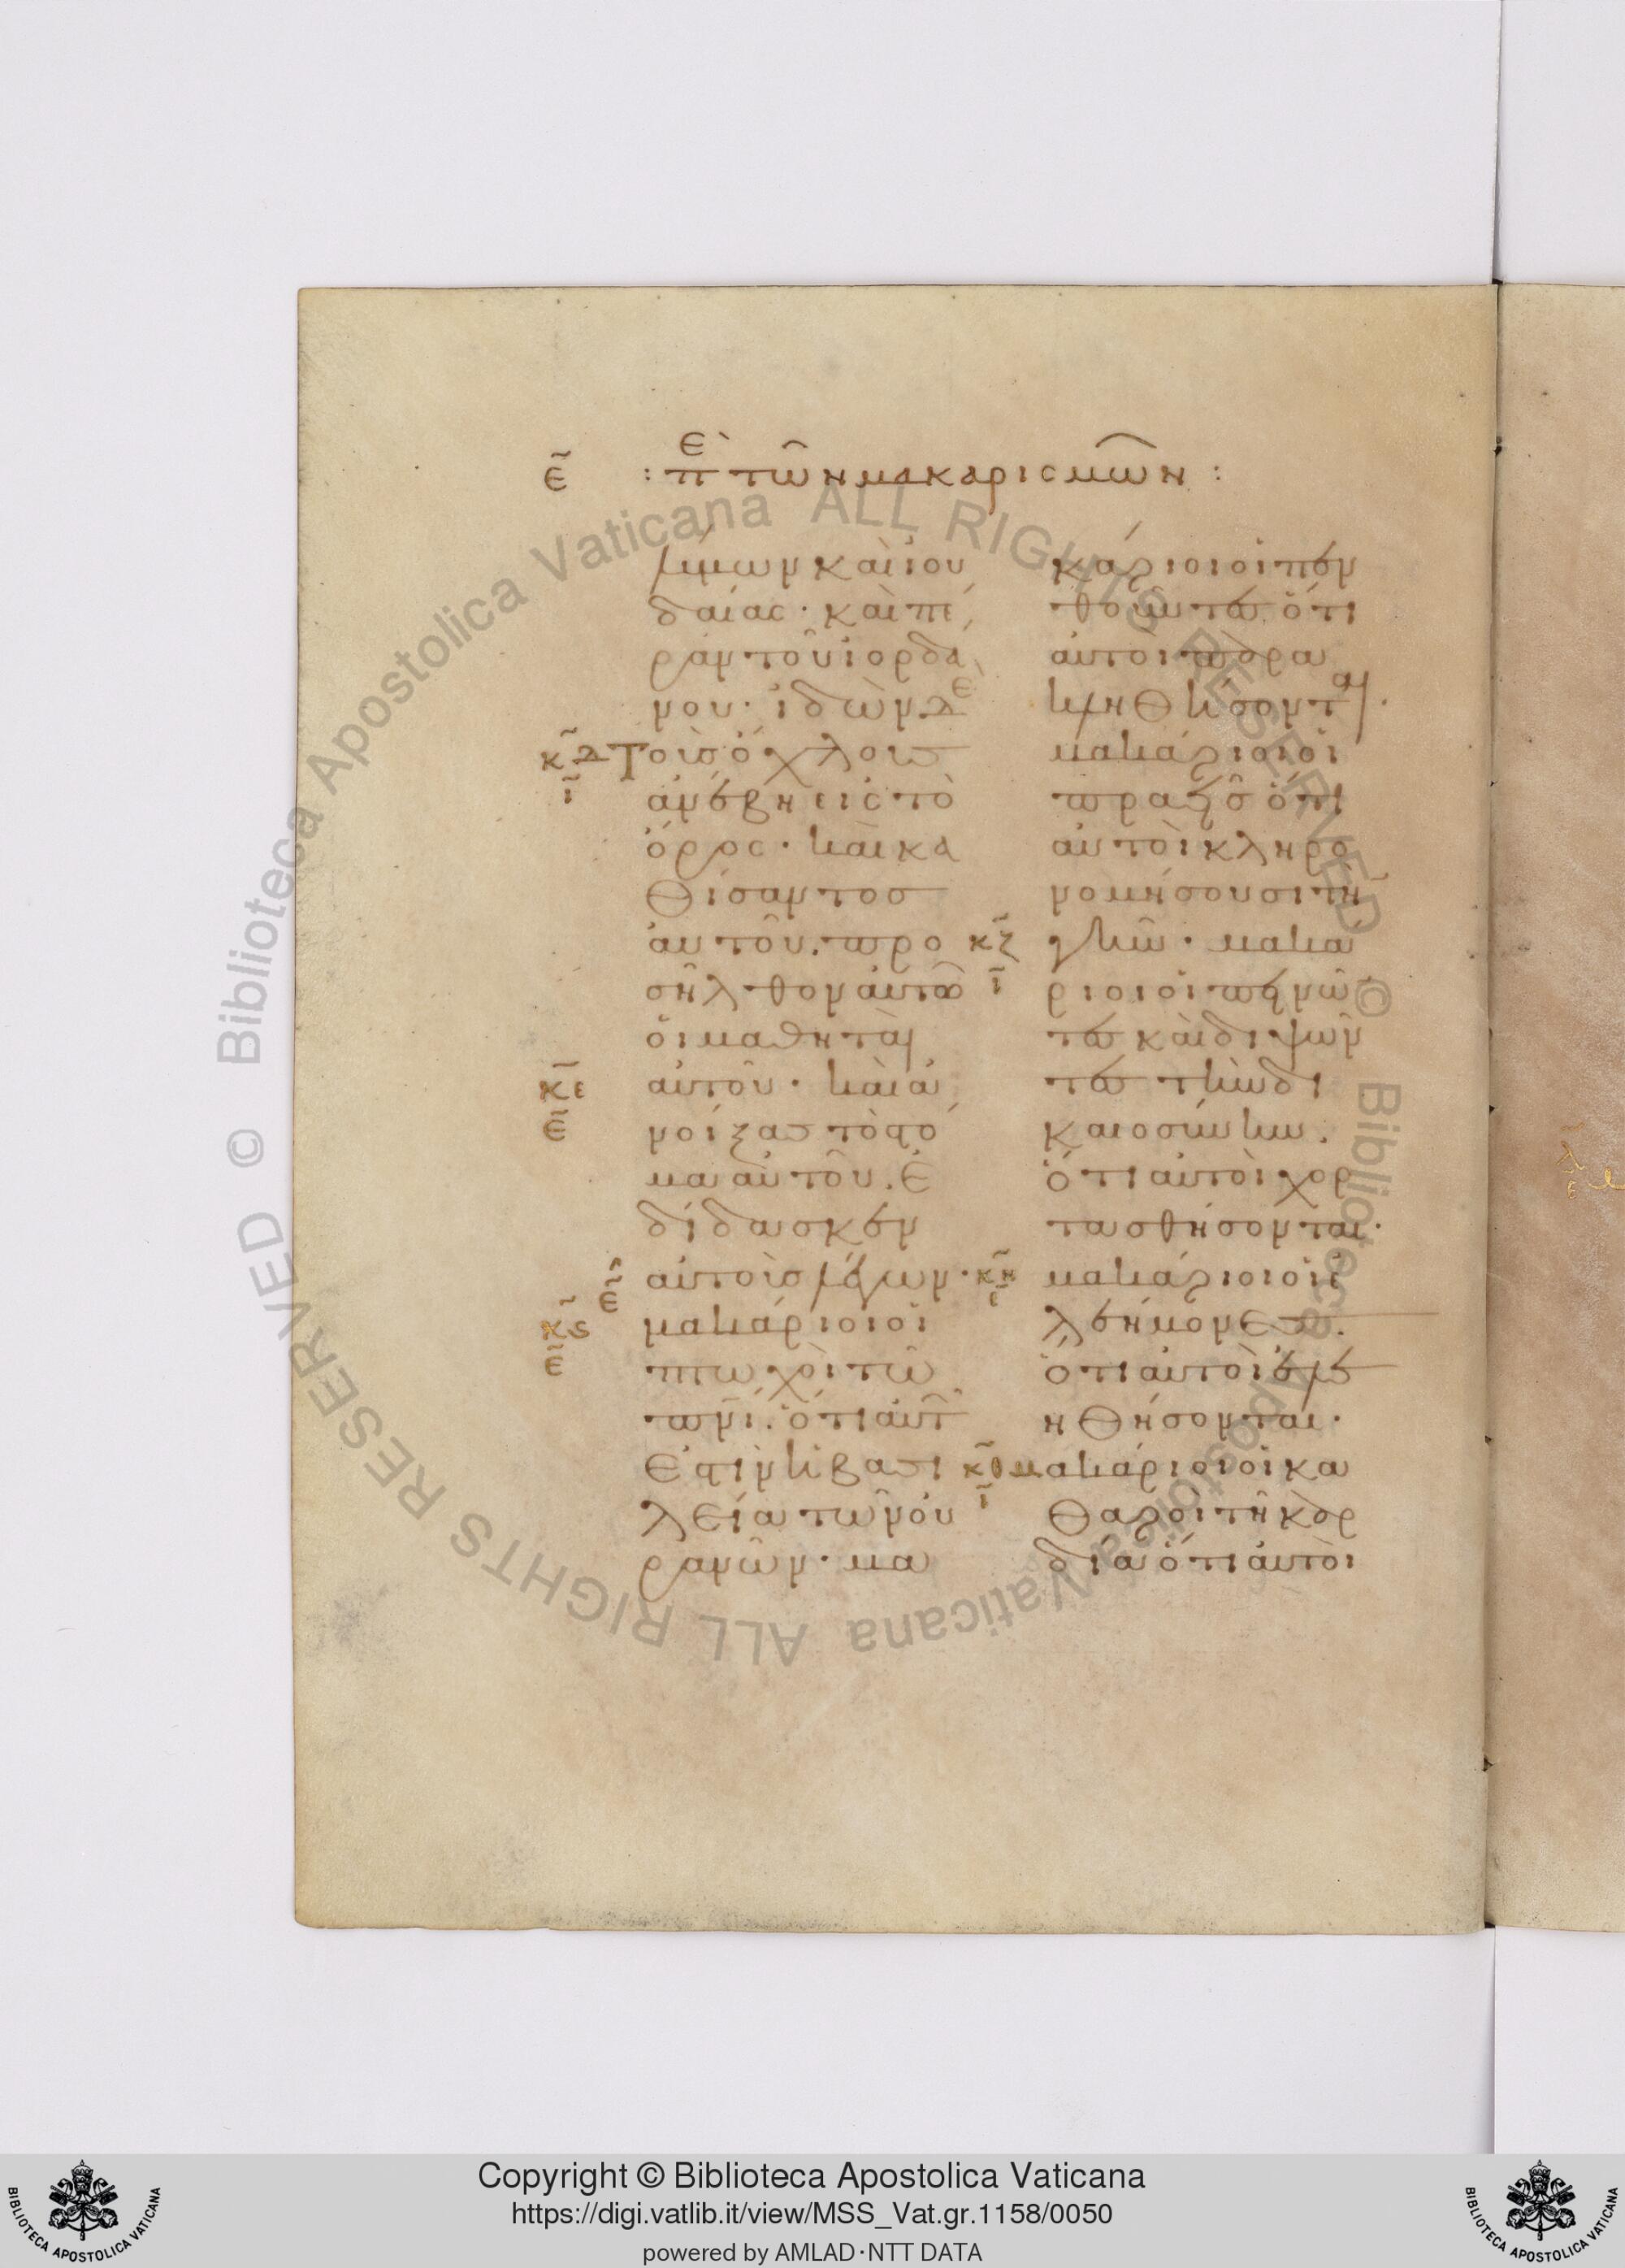 ε̃ : πὲ τῶν μακαρισμῶν :
λύμων και ιου
δαίας · και πέ
ραν του ϊορδά
νου · ϊδὼν δε
κ̃δ Τοὺσ ὄχλους
ι̃ ἀνέβη εις τὸ
όρος · και κα
θίσαντοσ
αυτοῦ · προ
σῆλθον αυτῶ
οι μαθηταὶ
κ̃ε αυτοῦ · και ἀ
ε̃ νοίξας τὸ στό
μα αυτοῦ · ἐ
δίδασκεν
ε̃ αυτοὺσ λέγων ·
κ̃ς μακάριοι οἱ
ε̃ πτωχοὶ τῶ
πν̃ι · ὅτι αυτῶ
ἐστὶν ἡ βασι
λεία τῶν ου
ρανῶν · μα
κάριοι οἱ πεν
θοῦντες ὅτι
αυτοὶ παρα
κληθήσονται ·
μακάριοι οἱ
πραεῖσ ὅτι
αυτοὶ κληρο
νομήσουσι τὴ
κ̃ζ γῆν · μακά
ι̃ ριοι οἱ πεινῶ
τες και διψῶν
τες τὴν δι
καιοσύνην ·
ὅτι αυτοὶ χορ
τασθήσονται ·
κ̃η μακάριοι οἱ ἐ
ι̃ λεήμονες ·
ὅτι αυτοὶ ἐλε
ηθήσονται ·
κ̃θ μακάριοι οἱ κα
ι̃ θαροὶ τῆ καρ
δία ὅτι αυτοὶ
© Biblioteca Apostolica Vaticana ALL RIGHTS RESERVED © Biblioteca Apostolica Vaticana ALL RIGHTS RESERVED
Copyright © Biblioteca Apostolica Vaticana
https://digi.vatlib.it/view/MSS_Vat.gr.1158/0050
powered by AMLAD·NTT DATA
BIBLIOTECA APOSTOLICA VATICANA
BIBLIOTECA APOSTOLICA VATICANA